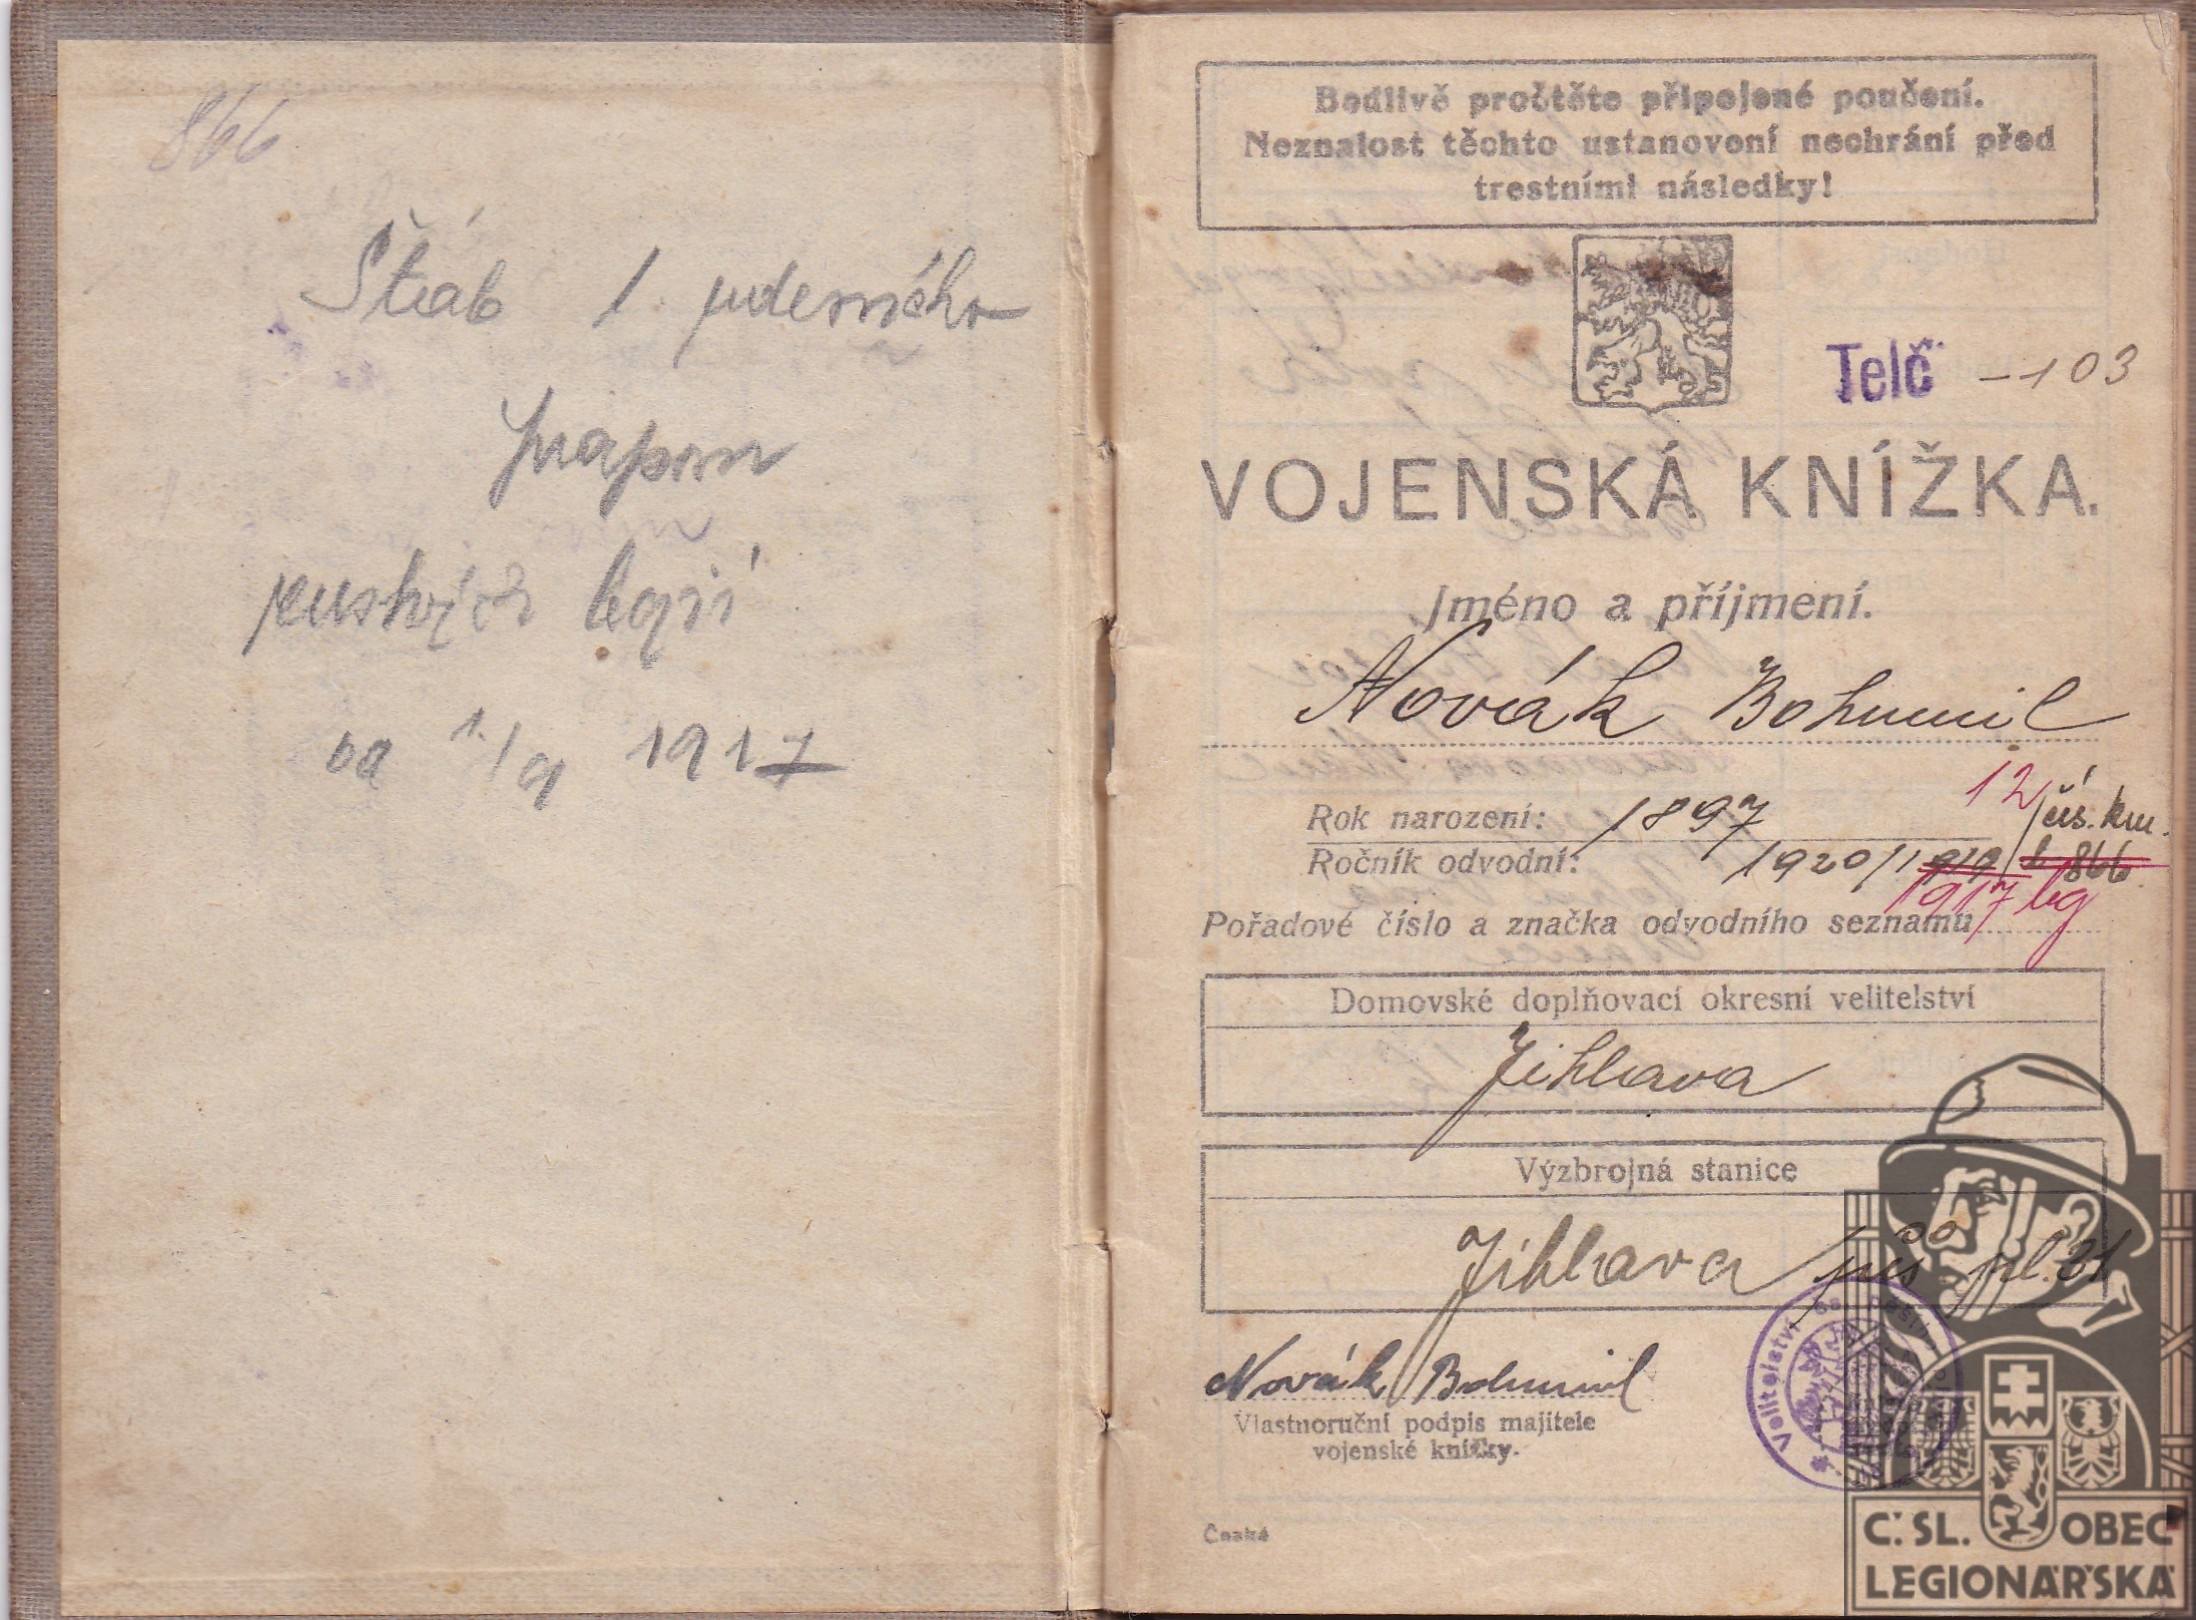 866
Štáb 1 úderného
prapor
ruských legií
od 1./9 1917
Bedlivě pročtěte připojené poučení.
Neznalost těchto ustanovení nechrání před
trestními následky!
Telč - 103
VOJENSKÁ KNÍŽKA.
Jméno a příjmení.
Novák Bohumil
Rok narození: 1897
12 / čís. km.
Ročník odvodní: 1920/1919 / 866
1917 leg
Pořadové číslo a značka odvodního seznamu
Domovské doplňovací okresní velitelství
Jihlava
Výzbrojná stanice
Jihlava pěš pl. 31
Novák Bohumil
Vlastnoruční podpis majitele
vojenské knížky.
Velitelství
České
Č.SL. OBEC
LEGIONÁŘSKÁ